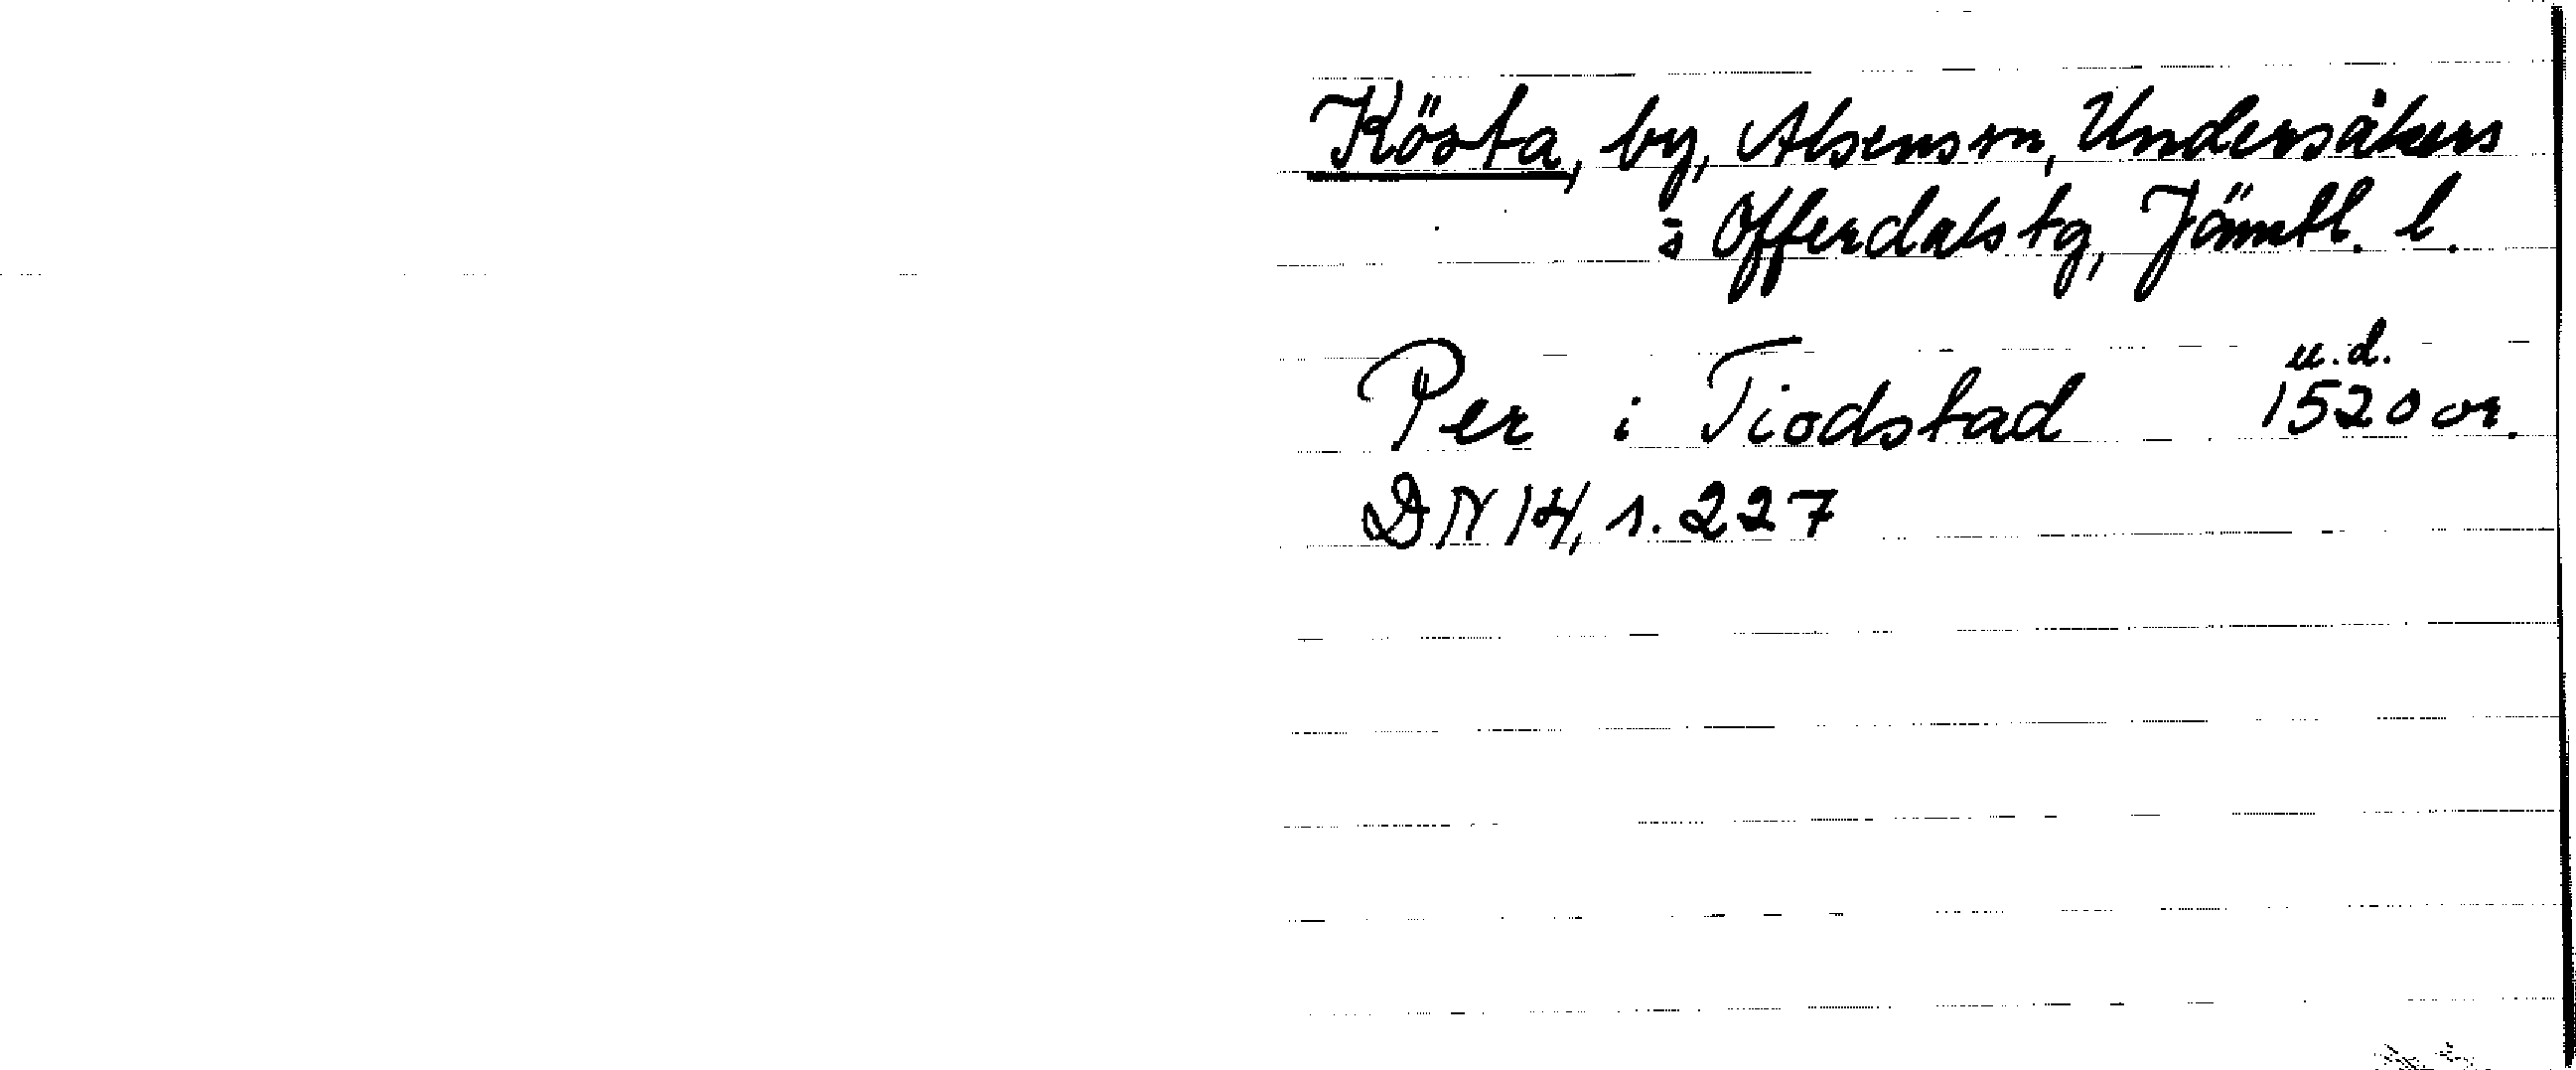 Kösta, by, Alsens sn, Undersåkers
o Offerdals tg, Jämtl. l.
u.d.
Per i Tiodstad 1520 or.
DN 14, s. 227